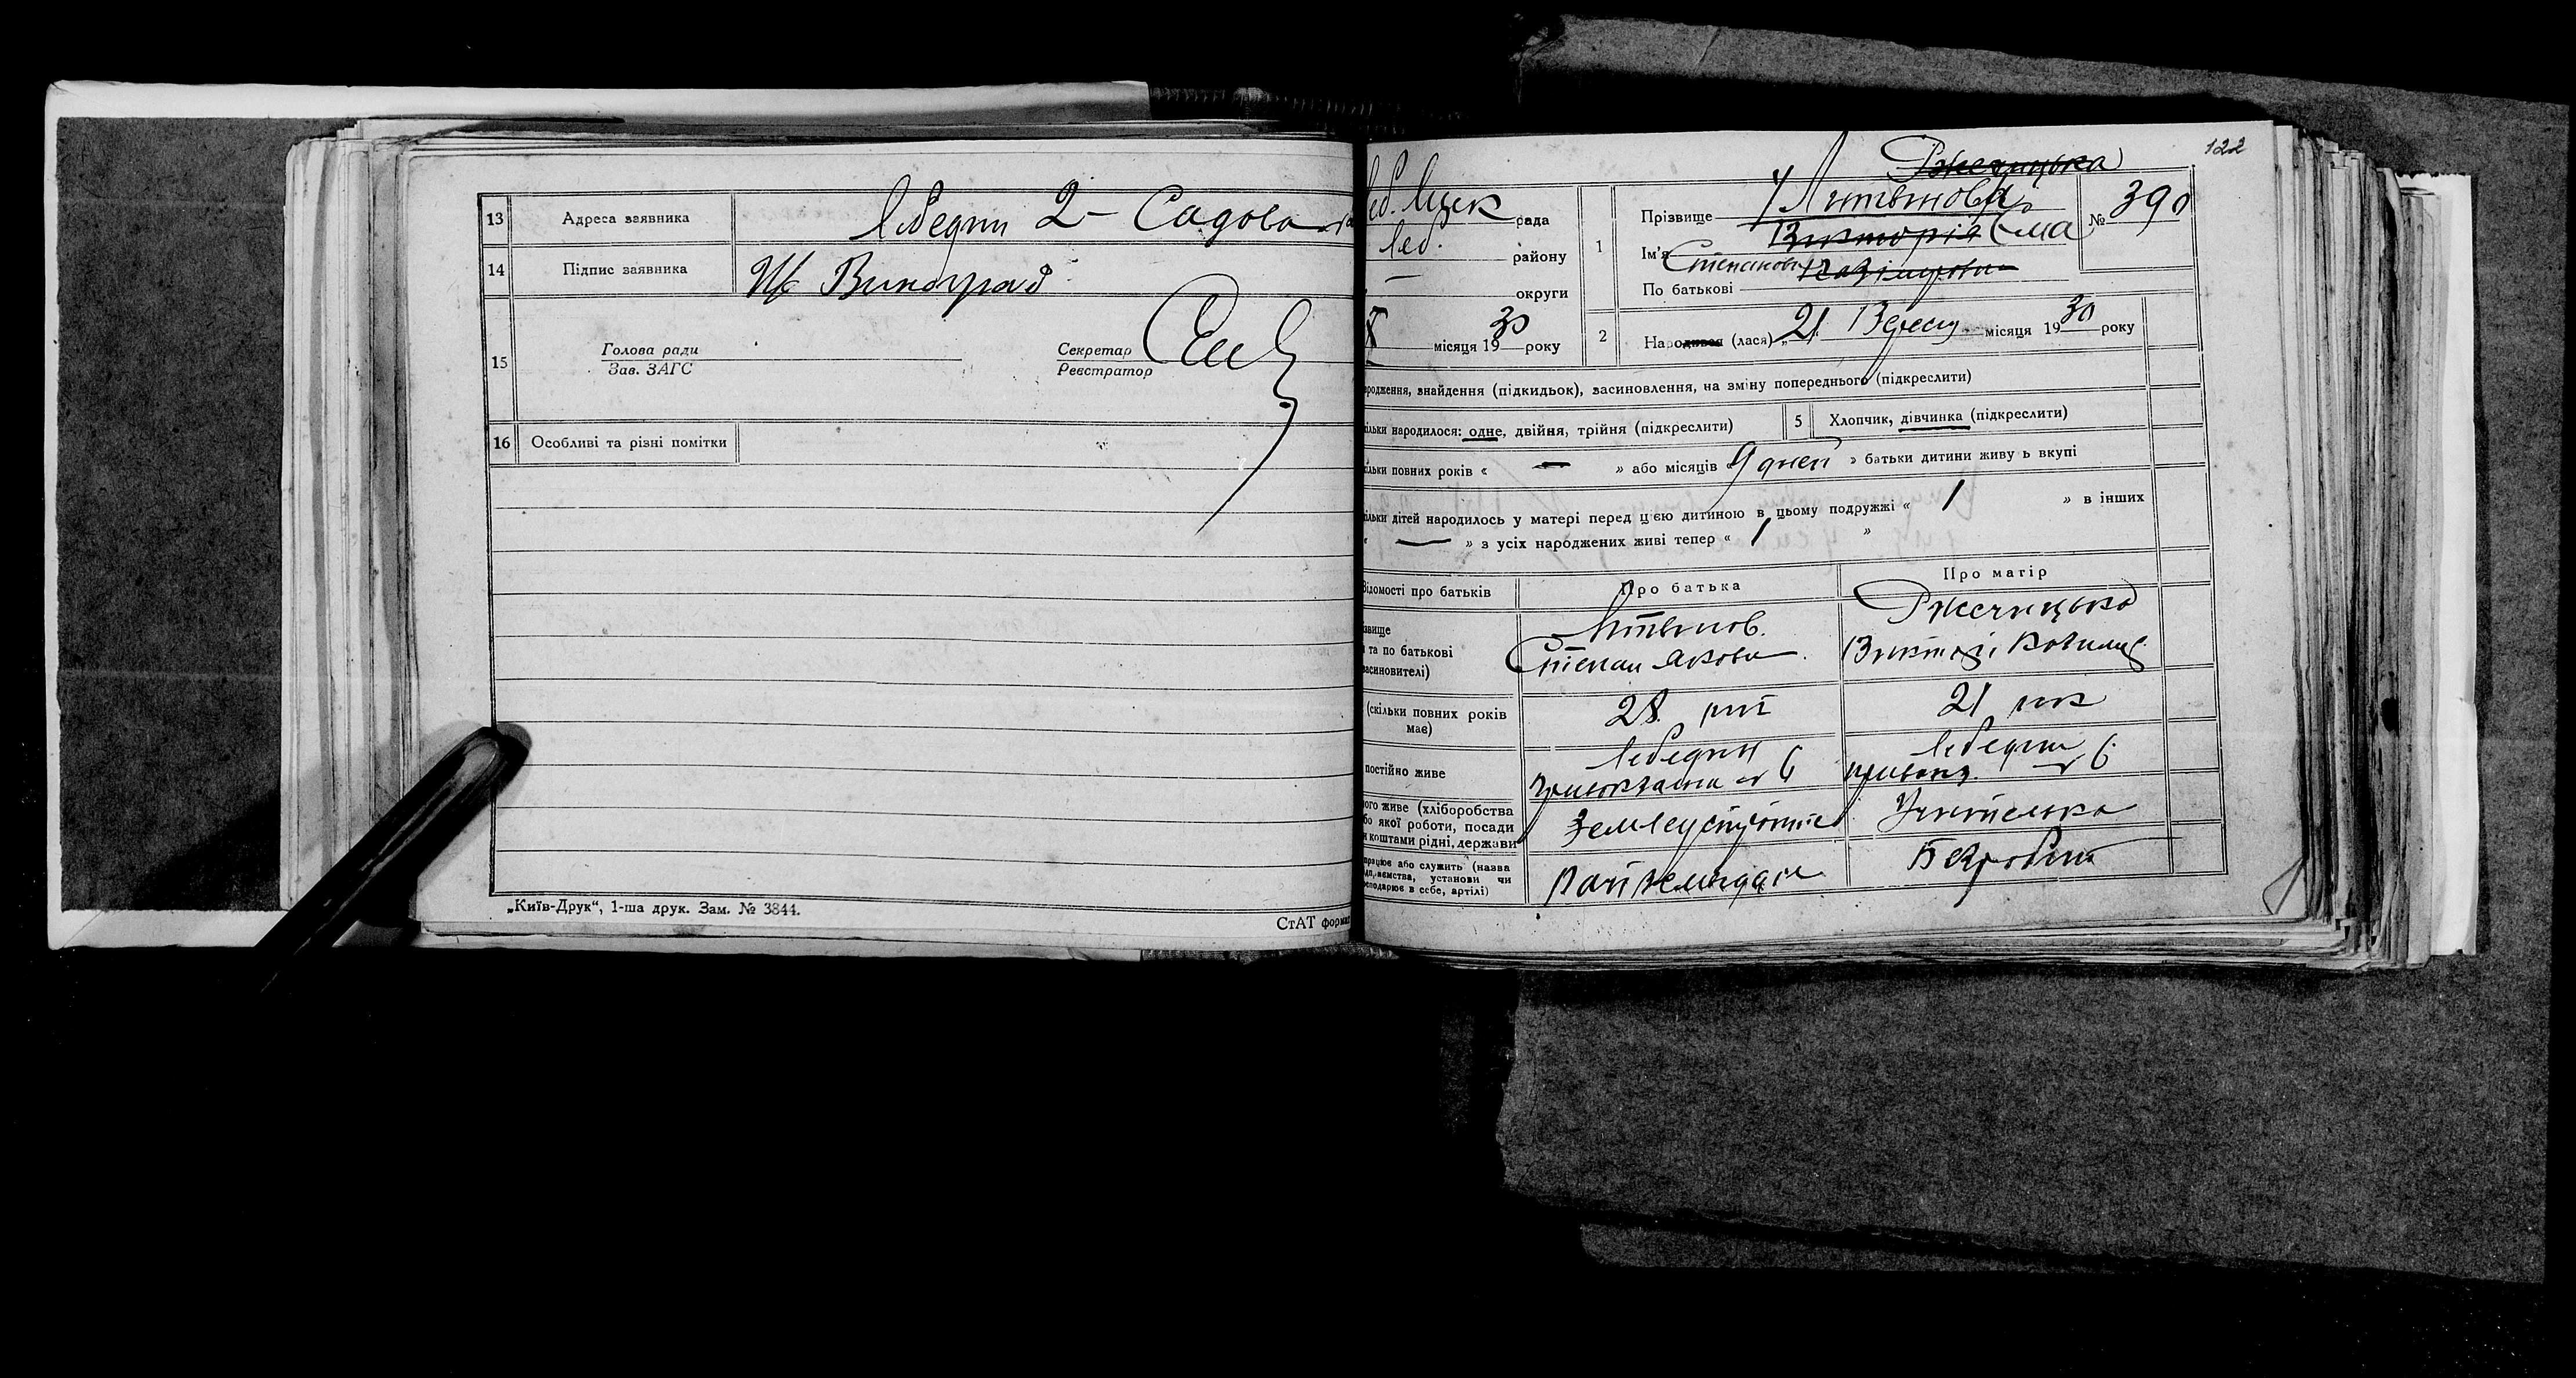 13 Адреса заявника Лебедин 2- Садова
14 Підпис заявника Виноград
15 Голова ради
Зав. ЗАГС
Секретар
Реєстратор
16 Особливі та різні помітки
„Київ-Друк“, 1-ша друк. Зам. № 3844.
СтАТ формат
122
Ржечицька
рада
Леб. району
округи
X місяця 1930 року
1 Прізвище Литвінова
№ 390
Ім'я Викторія Ема
По батькові Степанови Казімирови
2 Народився (лася) „21 Вересн місяця 1930 року
родження, знайдення (підкидьок), засиновлення, на зміну попереднього (підкреслити)
ільки народилося: одне, двійня, трійня (підкреслити)
5 Хлопчик, дівчинка (підкреслити)
ільки повних років « — » або місяців «9 дней » батьки дитини живу ь вкупі
ільки дітей народилось у матері перед цією дитиною в цьому подружжі « 1 » в інших
« — » з усіх народжених живі тепер « 1 »
Відомості про батьків
Про батька
Про матір
звище
та по батькові
засиновителі)
Литвинов.
Степан Якови
Ржечицька
(скільки повних років
має)
28 рік
21 рік
постійно живе
Лебедин
6
Лебедин
6
ого живе (хліборобства
бо якої роботи, посади
и коштами рідні, держави
Учителька
працює або служить (назва
дприємства, установи чи
осподарює в себе, артілі)
Безробітн